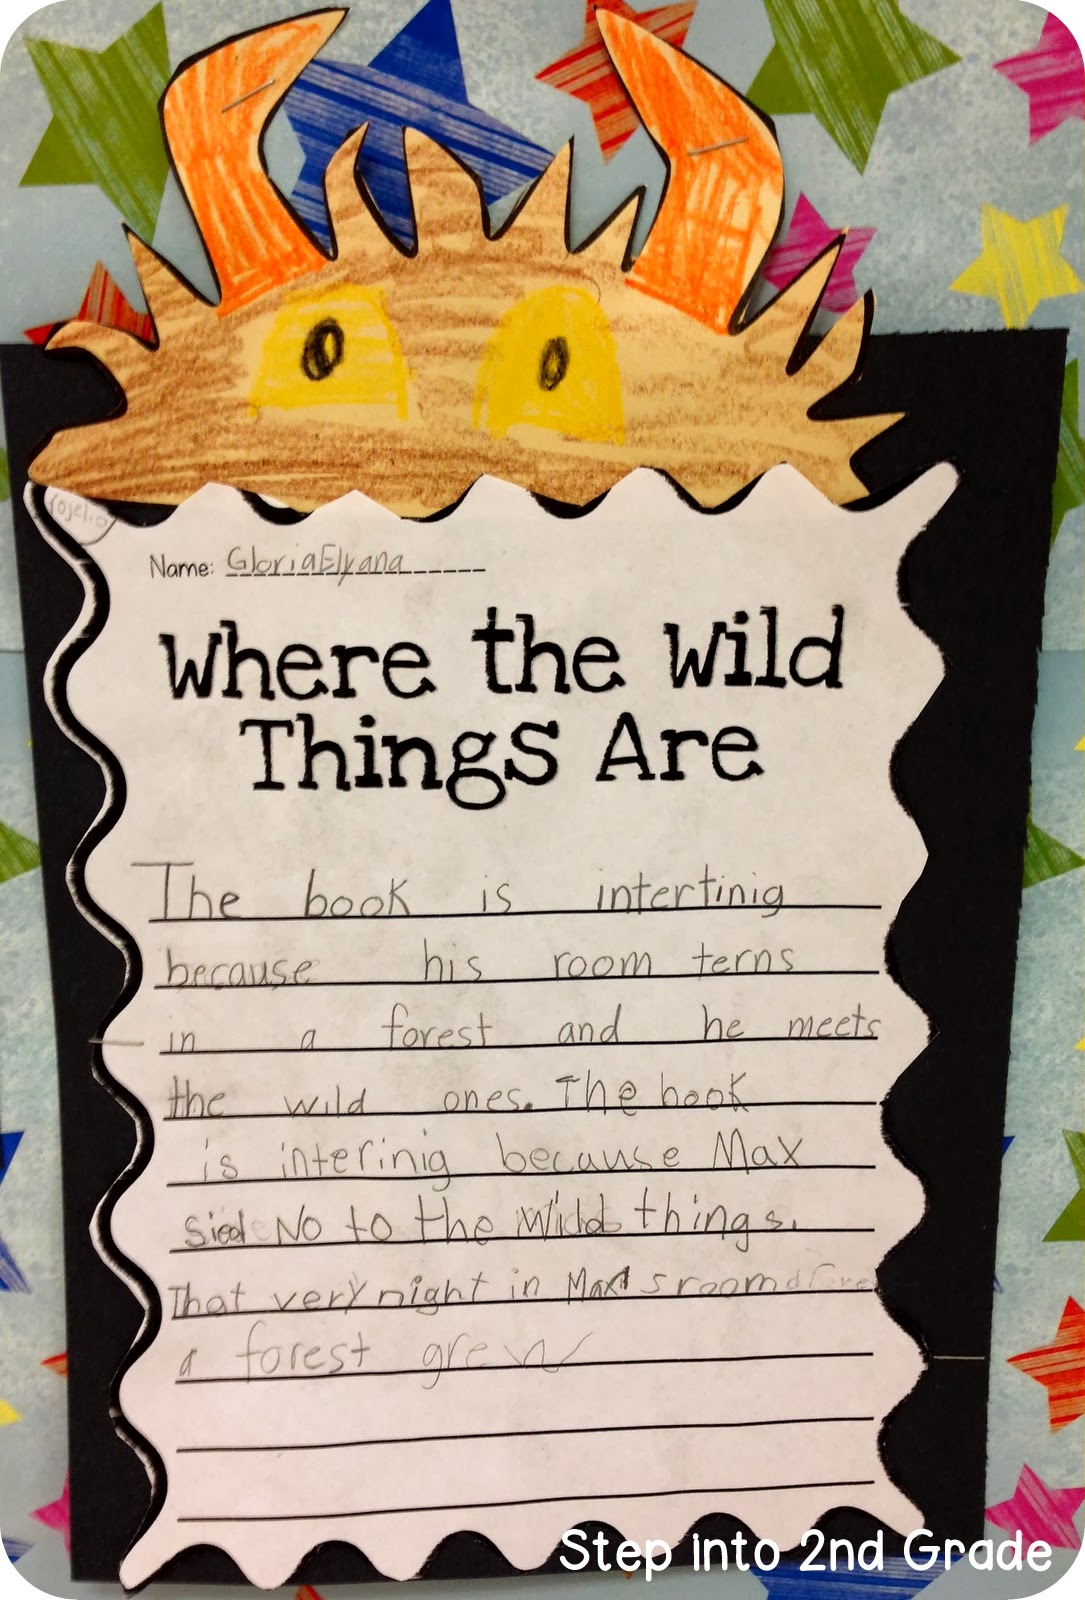 rojelio
Name: GloriaElyana
Where the Wild
Things Are
The book is intertinig
because his room terns
in a forest and he meets
the wild ones. The book
is interinig because Max
sied No to the Wild things.
That very night in Max's room
a forest grew
Step into 2nd Grade